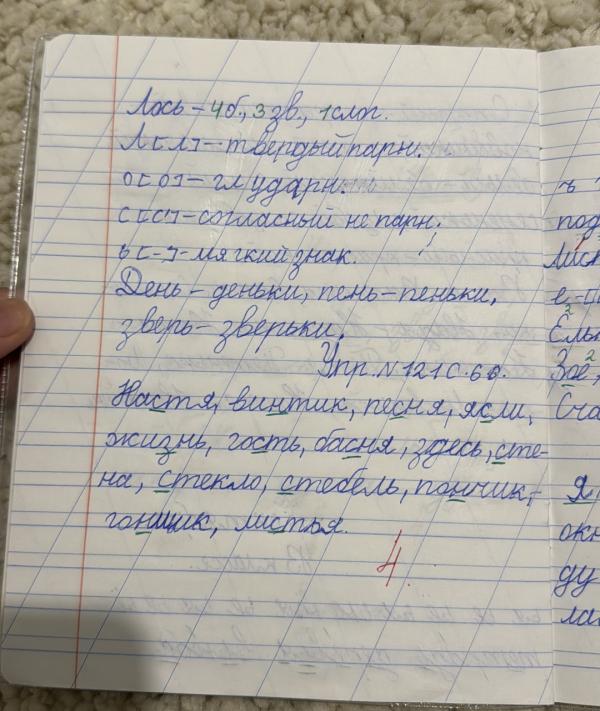 Лось – 4б., 3зв., 1слог.
Л[л] – твёрдый парн.
о[о] – гл ударн.
с[с'] – согласный не парн.
ь[-] – мягкий знак.
День – деньки, пень – пеньки,
зверь – зверьки.
Упр. N 121 С. 66.
Настя, винтик, песня, ясли,
жизнь, гость, басня, здесь, сте-
на, стекло, стебель, пончик,
гонщик, листья.
4
под
Ель
Зое,
Сча
Я
окн
ду
ла